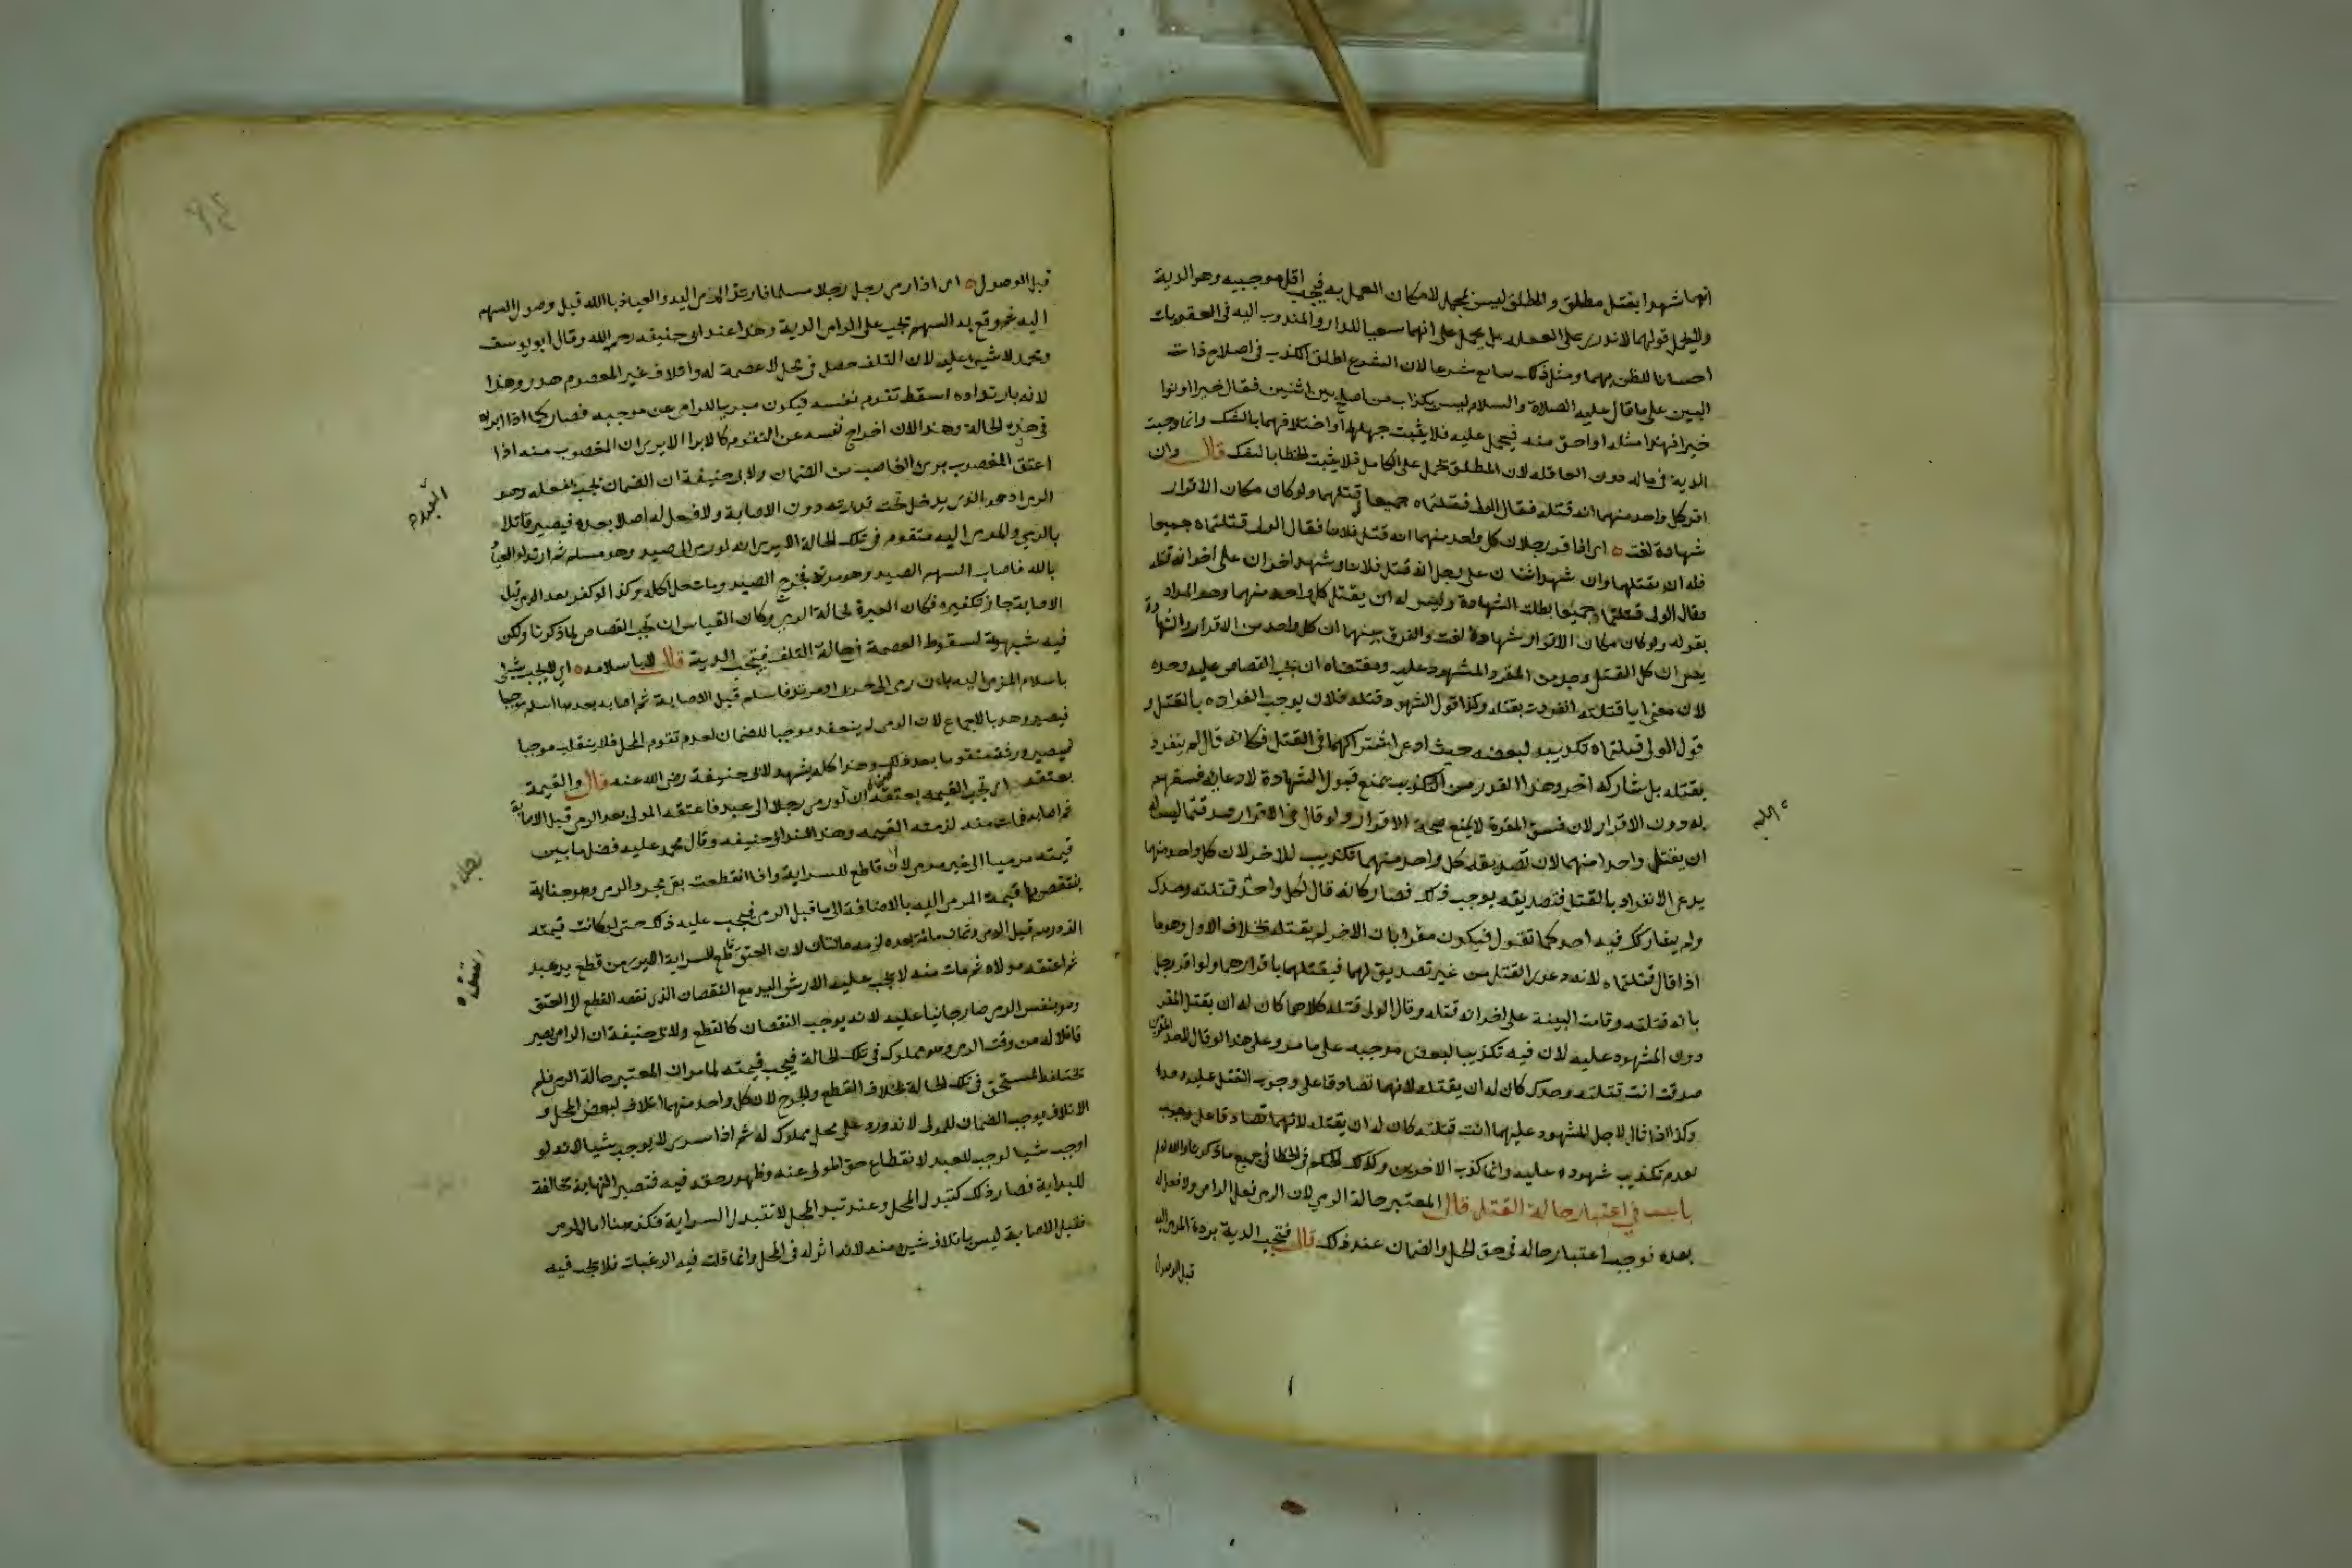 انهما شهدا بقتل مطلق والمطلق ليس بمجمل لامكان العمل به فيجب اقل موجبيه وهو الدية
ولا يحمل قولهما لا ندري على الغفلة بل يحمل على انهما سعيا للدرا والمندوب اليه في العقوبات
احسانا للظن بهما ومثل ذلك سايع شرعا لان الشرع اطلق الكذب في اصلاح ذات
البين على ما قال عليه الصلاة والسلام ليس بكذاب من اصلح بين اثنين فقال خيرا او نوا
خيرا فهذا مثله او احق منه فيحمل عليه فلا يثبت جهلهما او اختلافهما بالشك وانما وجبت
الدية في ماله دون العاقله لان المطلق يحمل على الكامل فلا يثبت الخطا بالشك قال وان
اقر كل واحد منهما انه قتله فقال الولي قتلتماه جميعا قتلهما ولو كان مكان الاقرار
شهادة لغت اي اذا اقر رجلان كل واحد منهما انه قتل فلانا فقال الولي قتلتماه جميعا
فله ان يقتلهما وان شهد اثنان على رجل انه قتل فلانا وشهد اخران على اخر انه قتله
وقال الولي قتلتماه جميعا بطلت الشهادة وليس له ان يقتل كل واحد منهما وهو المراد
بقوله ولو كان مكان الاقرار شهادة لغت والفرق بينهما ان كل واحد من الاقرار والشهادة
يعني ان كل القتل وجد من المقر والمشهود عليه ومقتضاه ان يجب القصاص عليه وحده
لان معنى انا قتلته انفردت بقتله وكذا قول الشهود قتله فلان يوجب انفراده بالقتل و
قول الولي قتلتماه تكذيب لبعضه حيث ادعى اشتراكهما في القتل فكانه قال لم ينفرد
بقتله بل شاركه اخر وهذا القدر من التكذيب يمنع قبول الشهادة لادعايه فسقهم
به دون الاقرار لان فسق المقر لا يمنع صحة الاقرار ولو قال في الاقرار صدقتما ليس له
ان يقتل واحدا منهما لان تصديقه كل واحد منهما تكذيب للاخر لان كل واحد منهما
يدعي الانفراد بالقتل فتصديقه يوجب ذلك فصار كانه قال لكل واحد قتلته وحدك
ولم يشاركك فيه احد كما تقول فيكون مقرا بان الاخر لم يقتله بخلاف الاول وهو ما
اذا قال قتلتماه لانه دعوى القتل من غير تصديق لهما فيقتلهما باقرارهما ولو اقر رجل
بانه قتلته وقامت البينة على اخر انه قتله وقال الولي قتله كلاهما كان له ان يقتل المقر
دون المشهود عليه لان فيه تكذيبا لبعض موجبه على ما مر وعلى هذا لو قال لاحد المقرين
صدقت انت قتلته وحدك كان له ان يقتله لانهما تصادقا على وجوب القتل عليه وحده
وكذا اذا قال لاحد المشهود عليهما انت قتلته كان له ان يقتله لانهما تصادقا على وجوب
لعدم تكذيب شهوده عليه وانما كذب الاخرين وكذلك الحكم في الخطا في جميع ما ذكرنا
باب في اعتبار حالة القتل قال المعتبر حالة الرمي لان الرمي فعل الرامي ولا فعل له
بعده فوجب اعتبار حاله في حق الحل والضمان عند ذلك قال فتجب الدية بردة المرمي اليه
قبل الوصول
اليه
قبل الوصول اي اذا رمى رجل رجلا مسلما فارتد المرمي اليه والعياذ بالله قبل وصول السهم
اليه ثم وقع به السهم تجب على الرامي الدية وهذا عند ابي حنيفه رحمه الله وقال ابو يوسف
ومحمد لا شيء عليه لان التلف حصل في محل لا عصمة له واتلاف غير المعصوم هدر وهذا
لانه بارتداده اسقط تقوم نفسه فيكون مبريا للرامي عن موجبه فصار كما اذا ابراه
في هذه الحالة وهذا لان اخراج نفسه عن التقوم كالابرا الا يرى ان المغصوب منه اذا
اعتق المغصوب برئ الغاصب من الضمان ولابي حنيفة ان الضمان يجب بفعله وهو
الرمي اذ هو الذي يدخل تحت قدرته دون الاصابة ولا فعل له اصلا بعده فيصير قاتلا
بالرمي والمرمي اليه متقوم في تلك الحالة الا يرى انه لو رمى الى صيد وهو مسلم ثم ارتد والعياذ
بالله فاصاب السهم الصيد وهو مرتد فجرح الصيد ومات حل اكله وكذا لو كفر بعد الرمي قبل
الاصابة جاز تكفيره فكان العبرة لحالة الرمي وكان القياس ان تجب القصاص لما ذكرنا ولكن
فيه شبهة لسقوط العصمة في حالة التلف فتجب الدية قال لا باسلامه اي لا يجب شيء
باسلام المرمي اليه بان رمى الى حربي او مرتد فاسلم قبل الاصابة ثم اصابه بعد ما اسلم
وهو بالاجماع لان الرمي لم ينعقد موجبا للضمان لعدم تقوم المحل فلا ينقلب موجبا
لصيرورته متقوما بعد ذلك وهذا كله يشهد لابي حنيفة رضي الله عنه قال والقيمة
بعتقه اي تجب القيمة بعتقه ان لو رمى رجل الى عبد فاعتقه المولى بعد الرمي قبل الاصابة
ثم اصابه فمات منه لزمته القيمة وهذا عند ابي حنيفه وقال محمد عليه فضل ما بين
قيمته مرميا الى غير مرمي لان قاطع للسراية واذا انقطعت بقي مجرد الرمي وهو جناية
ينتقص بها قيمة المرمي اليه بالاضافة الى ما قبل الرمي فيجب عليه ذلك حتى لو كانت قيمته
الف درهم قبل الرمي وثمان مائة بعده لزمه مائتان لان العتق قاطع للسراية الا يرى من قطع يد عبد
ثم اعتقه مولاه ثم مات منه لا يجب عليه الا ارش اليد مع النقصان الذي نقصه القطع الى العتق
وهو بنفس الرمي صار جانيا عليه لانه يوجب النقصان كالقطع ولابي حنيفة ان الرامي يصير
قاتلا له من وقت الرمي وهو مملوك في تلك الحالة فيجب قيمته لما مر ان المعتبر حالة الرمي فلم
يختلف المستحق في تلك الحالة بخلاف القطع والجرح لان كل واحد منهما اتلاف لبعض المحل و
الاتلاف يوجب الضمان للمولى لانه ورد على محل مملوك له ثم اذا سرى لا يوجب شيئا لانه لو
اوجب شيئا لوجب للعبد لانقطاع حق المولى عنه وظهور حقه فيه فتصير النهاية مخالفة
للبداية فصار ذلك كتبدل المحل وعند تبدل المحل لا تتبدل السراية فكذا هنا اما الرمي
فقبل الاصابة ليس باتلاف شيء منه لانه لا اثر له في المحل وانما قلت فيه الرغبات فلا يجب فيه